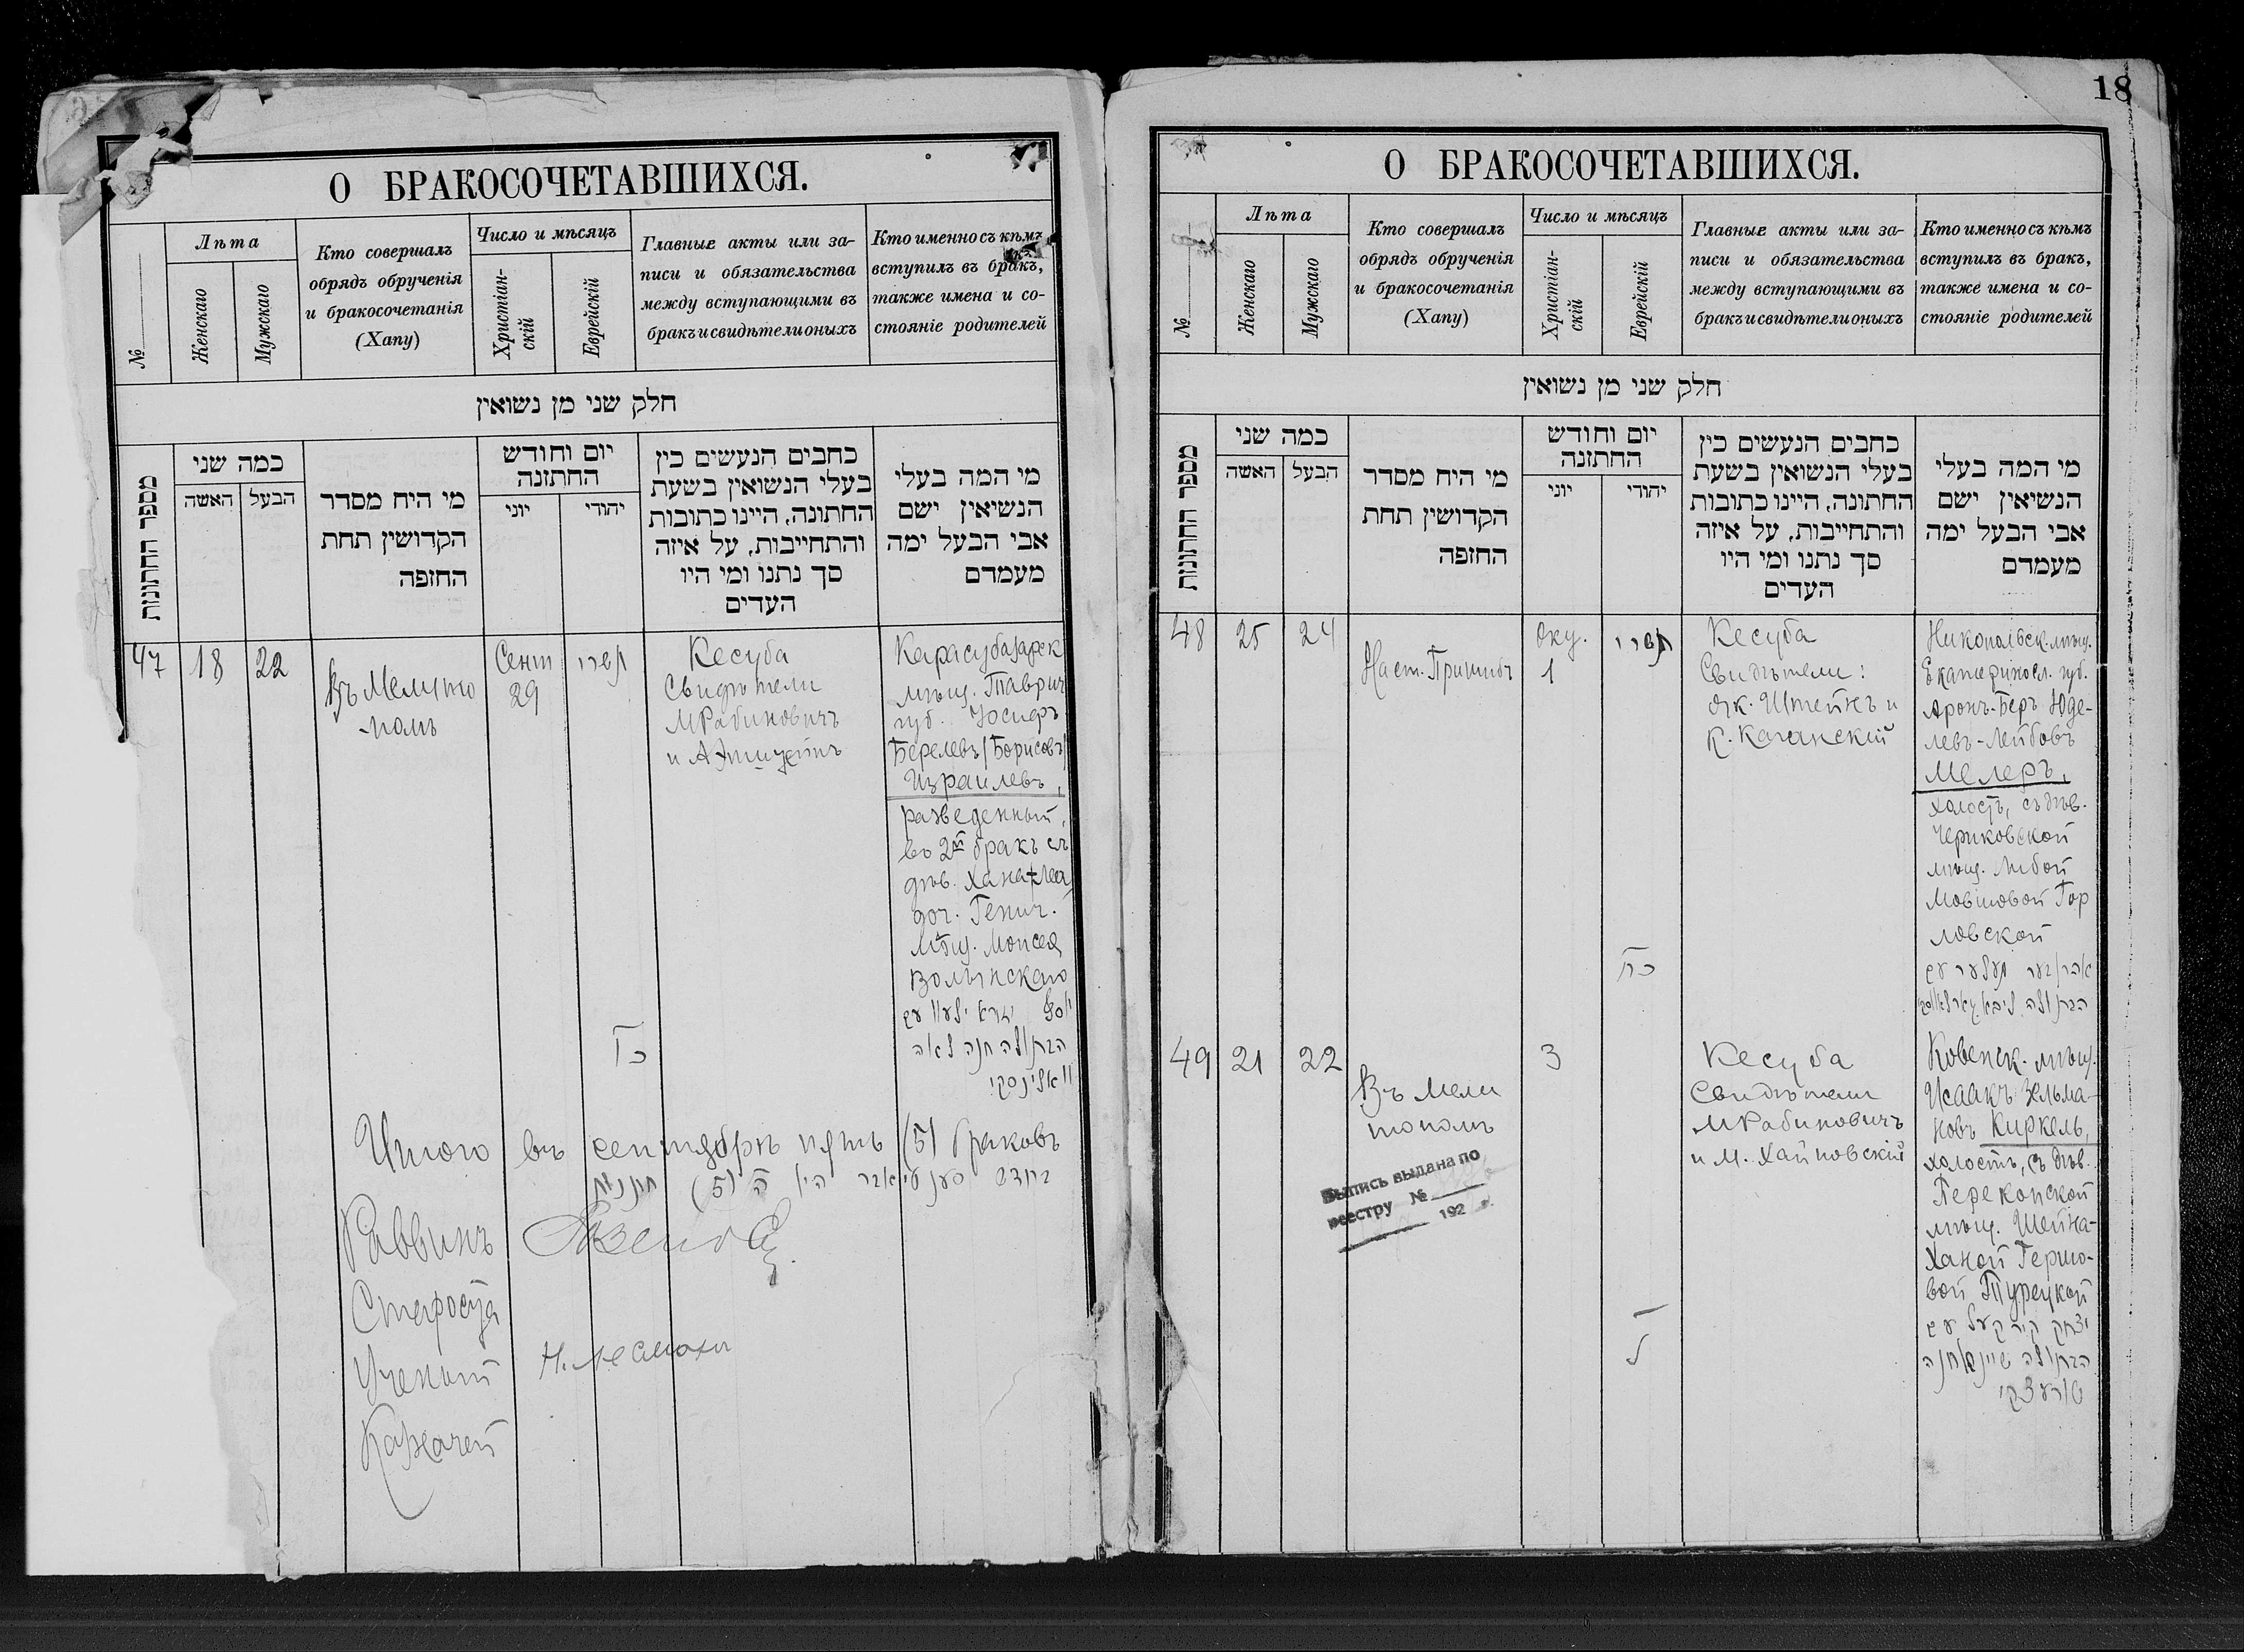 О БРАКОСОЧЕТАВШИХСЯ.
№
Лѣта
Женскаго
Мужскаго
Кто совершалъ
обрядъ обрученія
и бракосочетанія
(Хапу)
Число и мѣсяцъ
Христіан-
скій
Еврейскій
Главные акты или за-
писи и обязательства
между вступающими въ
бракъ и свидѣтели оныхъ
Кто именно съ кѣмъ
вступилъ въ бракъ,
также имена и со-
стояніе родителей
חלק שני מן נשואין
מספר החתונות
כמה שני
האשה
הבעל
מי היח מסדר
הקדושין תחת
החופה
יום וחודש
החתונה
יוני
יהודי
כחבים הנעשים כין
בעלי הנשואין בשעת
החתונה, היינו כתובות
והתחייבות, על איזה
סך נתנו ומי היו
העדים
מי המה בעלי
הנשיאין ישם
אבי הבעל ימה
מעמדם
47
18
22
Въ Мелито
полѣ
Сент
29
תשרי
כו
Кесуба
Свидѣтели
М Рабиновичъ
и А
Карасубазарск
мѣщ. Таврич
губ. Іосифъ
Берелевъ (Борисовъ)
Израилевъ,
разведенный,
въ 2й бракъ съ
дѣв. Хана-Леа
доч. Генич.
Мѣщ. Моисея
Волынскаго
יוסף עם
הבתולה חנה לאה
וואלינסקי
Итого въ сентябрѣ пять (5) браковъ
בחודש סענטיאבר היו ה' (5) חתונות
Раввинъ
Староста
Ученый
Казначей
18
О БРАКОСОЧЕТАВШИХСЯ.
№
Лѣта
Женскаго
Мужскаго
Кто совершалъ
обрядъ обрученія
и бракосочетанія
(Хапу)
Число и мѣсяцъ
Христіан-
скій
Еврейскій
Главные акты или за-
писи и обязательства
между вступающими въ
бракъ и свидѣтели оныхъ
Кто именно съ кѣмъ
вступилъ въ бракъ,
также имена и со-
стояніе родителей
חלק שני מן נשואין
מספר החתונות
כמה שני
האשה
הבעל
מי היח מסדר
הקדושין תחת
החופה
יום וחודש
החתונה
יוני
יהודי
כחבים הנעשים כין
בעלי הנשואין בשעת
החתונה, היינו כתובות
והתחייבות, על איזה
סך נתנו ומי היו
העדים
מי המה בעלי
הנשיאין ישם
אבי הבעל ימה
מעמדם
48
25
24
Наст. Пришибъ
Окт.
1
תשרי
כח
Кесуба
Свидѣтели:
Як. Штейнъ и
К. Каганскій
Никопольск. мѣщ.
Екатериносл. губ.
Аронъ-Беръ Юде-
левъ-Лейбовъ
Мелеръ,
холостъ, съ дѣв.
Чериковской
мѣщ. Либой
Мовшовой Гор
ловской
אהרן בער מעלער עם
הבתולה ליבא
49
21
22
Въ Мели
тополѣ
3
ל
Кесуба
Свидѣтели
М Рабиновичъ
и М. Хайновскій
Ковенск. мѣщ.
Исаакъ Зельма-
новъ Киркель,
холостъ, съ дѣв.
Перекопской
мѣщ. Шейна-
Ханой Гершо-
вой Турецкой
יצחק קירקעל עם
הבתולה שיינע חנה
טורעצקי
Выпись выдана по
реестру №
192 г.